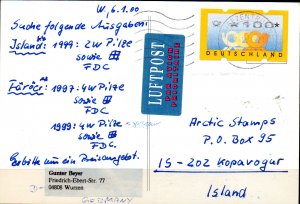 W, 6.1.00
Suche folgende Ausgaben:
Island: 1999: 2W Pilze
sowie ⊞
FDC
Färöer 1997: 4W Pilze
sowie ⊞
FDC
1989: 4W Pilze
sowie ⊞
Erbitte um ein Preisangebot.
Gunter Beyer
Friedrich-Ebert-Str. 77
04808 Wurzen
D-
GERMANY
LUFTPOST
*100*
DEUTSCHLAND
Arctic Stamps
P.O. Box 95
IS-202 Kopavogur
Island